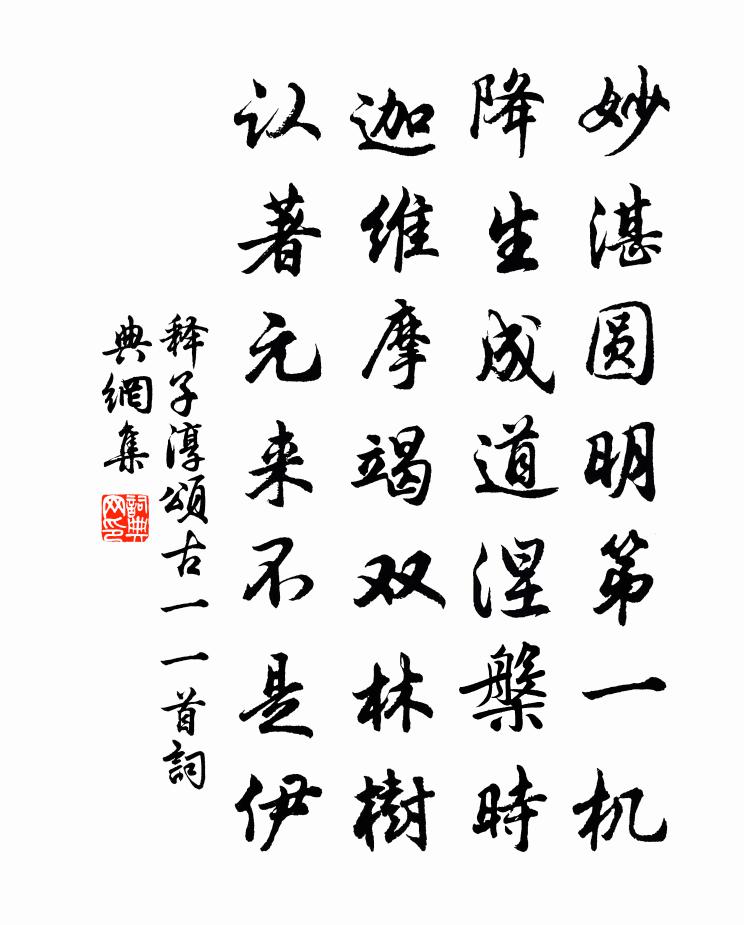 妙湛圆明第一机
降生成道涅槃时
迦维摩竭双林樹
认著元来不是伊
释子淳頌古一一首詞
典網集
詞典网印